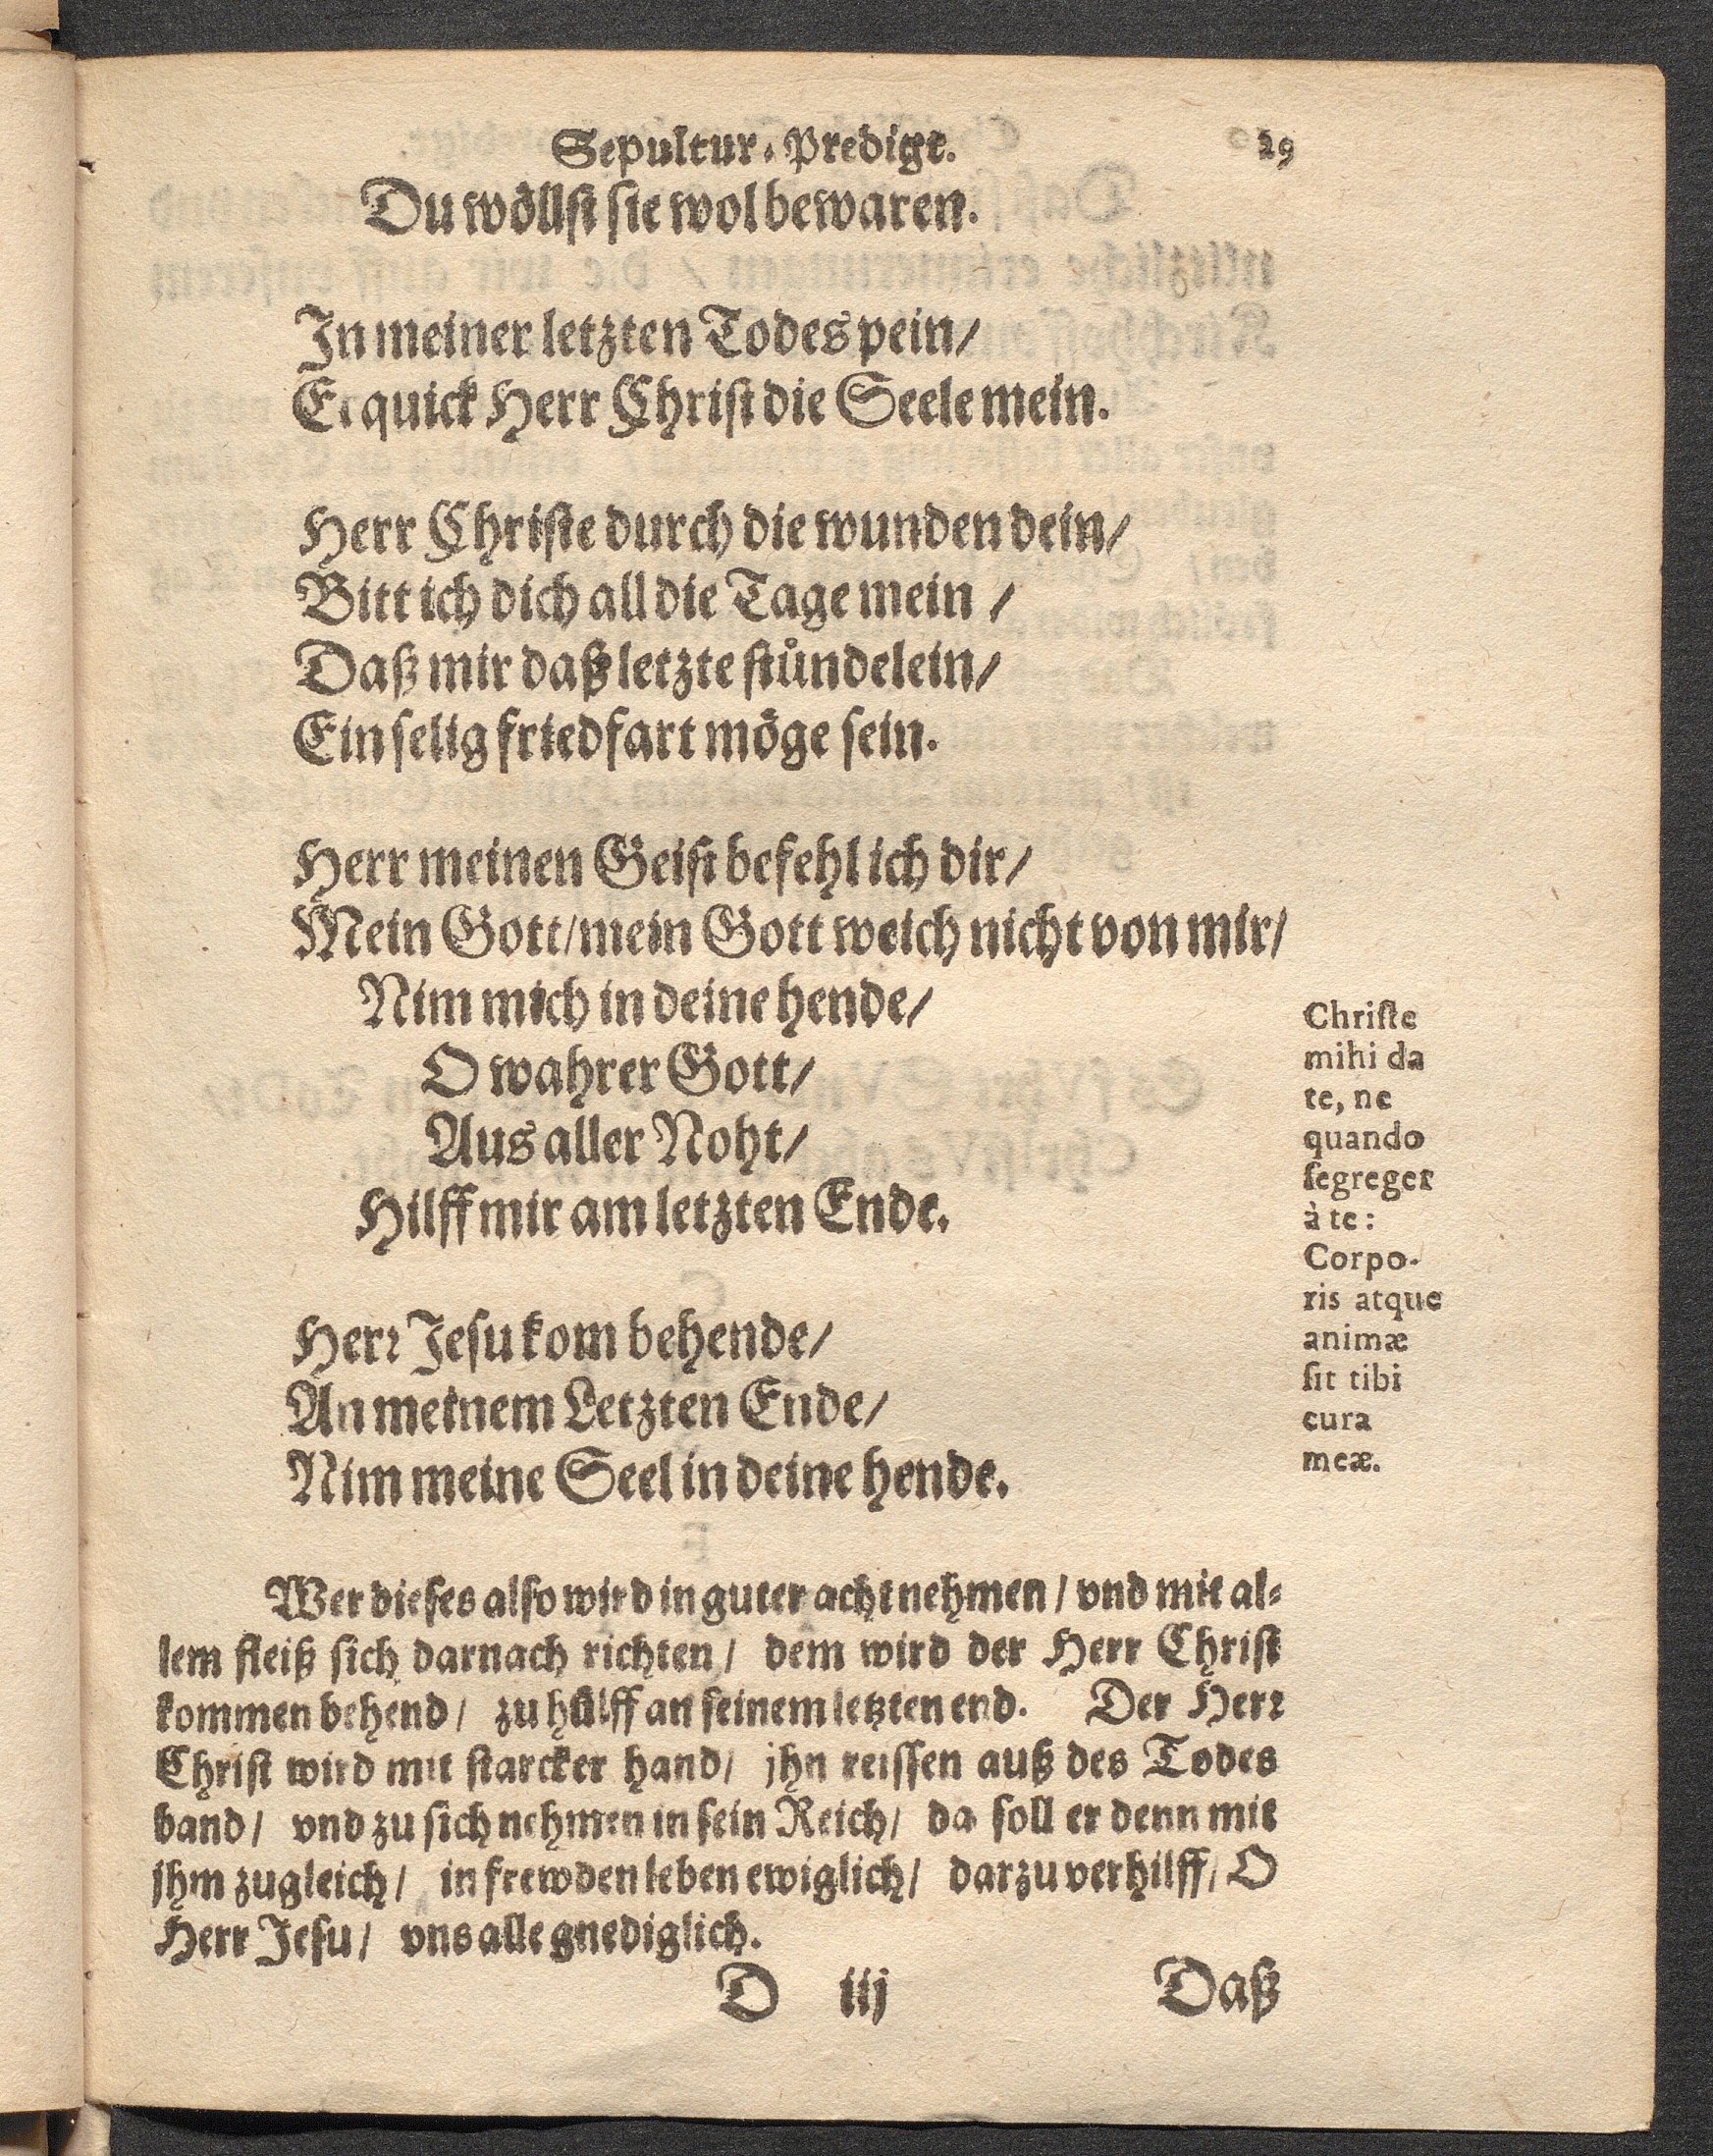 Sepultur-Predigt. 29
Du wöllst sie wol bewaren.
In meiner letzten Todes pein/
Erquick Herr Christ die Seele mein.
Herr Christe durch die wunden dein/
Bitt ich dich all die Tage mein /
Daß mir daß letzte stůndelein/
Ein selig friedfart möge sein.
Herr meinen Geist befehl ich dir/
Mein Gott/mein Gott weich nicht von mir/
Nim mich in deine hende/
O wahrer Gott/
Aus aller Noht/
Hilff mir am letzten Ende.
Herr Jesu kom behende/
An meinem Letzten Ende/
Nim meine Seel in deine hende.
Christe
mihi da
te, ne
quando
segreger
à te:
Corpo-
ris atque
animæ
sit tibi
cura
meæ.
Wer dieses also wird in guter acht nehmen / vnd mit al-
lem fleiß sich darnach richten / dem wird der Herr Christ
kommen behend / zu hülff an seinem letzten end. Der Herr
Christ wird mit starcker hand / jhn reissen auß des Todes
band / vnd zu sich nehmen in sein Reich / da soll er denn mit
jhm zugleich / in frewden leben ewiglich / darzu verhilff / O
Herr Jesu / vns alle gnediglich.
D iij Daß